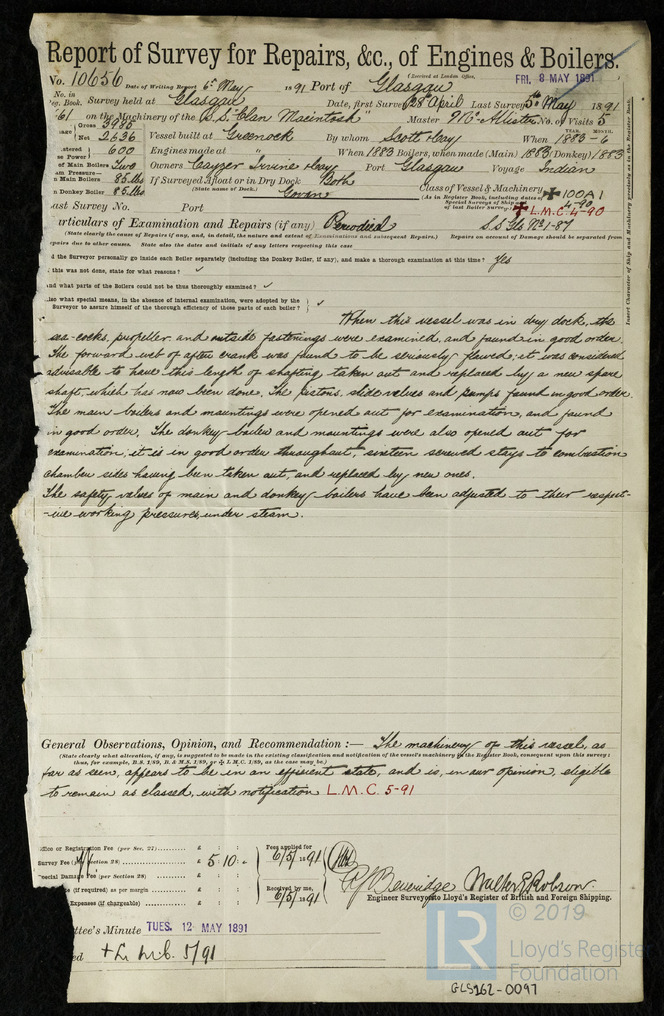 Report of Survey for Repairs, &c., of Engines & Boilers.
(Received at London Office,
No. 10656 Date of Writing Report 6th May 1891 Port of Glasgow FRI. 8 MAY 1891
No. in
Reg. Book. Survey held at Glasgow Date, first Survey 28 April Last Survey 5th May 1891
61 on the Machinery of the S.S. "Clan Macintosh" Master McAllister No. of Visits 5
Gross 3985
Net 2636 Vessel built at Greenock By whom Scott & Coy When 1883-6
YEAR. MONTH.
stered 600 Engines made at " When 1883 Boilers, when made (Main) 1883 (Donkey) 1883
se Power
of Main Boilers Two Owners Cayzer Irvine & Coy Port Glasgow Voyage Indian
am Pressure—
n Main Boilers 85 lbs If Surveyed Afloat or in Dry Dock Both
(State name of Dock.) Govan
n Donkey Boiler 85 lbs
Class of Vessel & Machinery ✠ 100A1
(As in Register Book, including dates of Special Surveys of Ship & of last Boiler survey) 4-90
✠ L.M.C. 4-90
S.S. Gls No. 1-87
ast Survey No. Port
articulars of Examination and Repairs (if any) Periodical
(State clearly the cause of Repairs if any, and, in detail, the nature and extent of Examinations and subsequent Repairs.) Repairs on account of Damage should be separated from
epairs due to other causes. State also the dates and initials of any letters respecting this case
d the Surveyor personally go inside each Boiler separately (including the Donkey Boiler, if any), and make a thorough examination at this time? Yes
this was not done, state for what reasons? ✓
nd what parts of the Boilers could not be thus thoroughly examined? ✓
lso what special means, in the absence of internal examination, were adopted by the
Surveyor to assure himself of the thorough efficiency of those parts of each boiler? ✓
Insert Character of Ship and Machinery precisely as in the Register Book.
When this vessel was in dry dock, the
sea-cocks, propeller and outside fastenings were examined, and found in good order.
The forward web of after crank was found to be seriously flawed; it was considered
advisable to have this length of shafting taken out and replaced by a new spare
shaft, which has now been done. The pistons, slide valves and pumps found in good order.
The main boilers and mountings were opened out for examination, and found
in good order. The donkey boiler and mountings were also opened out for
examination, it is in good order throughout, sixteen screwed stays to combustion
chamber sides having been taken out, and replaced by new ones.
The safety valves of main and donkey boilers have been adjusted to their respect-
-ive working pressures under steam.
General Observations, Opinion, and Recommendation:— The machinery of this vessel, as
(State clearly what alteration, if any, is suggested to be made in the existing classification and notification of the vessel's machinery in the Register Book, consequent upon this survey:
thus, for example, B.S. 1/89, B. & M.S. 1/89, or ✠ L.M.C. 1/89, as the case may be.)
far as seen, appears to be in an efficient state, and is, in our opinion, eligible
to remain as classed, with notification L.M.C. 5-91
ffice or Registration Fee (per Sec. 27) £ : :
Survey Fee (per Section 28) £ 5 : 10 : -
pecial Damage Fee (per Section 28) £ : :
(if required) as per margin £ : :
Expenses (if chargeable) £ : :
Fees applied for
6/5/1891
Received by me,
6/5/1891
R J Beveridge Walter E Robson.
Engineer Surveyors to Lloyd's Register of British and Foreign Shipping.
ttee's Minute TUES. 12 MAY 1891
ed + L.M.C. 5/91
© 2019
LR
Lloyd's Register
Foundation
GLS162-0097